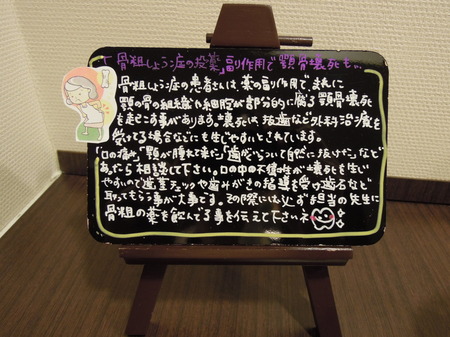 「骨粗しょう症の投薬」副作用で顎骨壊死も…
骨粗しょう症の患者さんは、薬の副作用で、まれに
顎の骨の組織や細胞が部分的に腐る顎骨壊死
を起こす事があります。壊死は、抜歯など外科治療を
受ける場合などにも生じやすいとされています。
「口の痛み」「顎が腫れて来た」「歯がぐらついて自然に抜けた」など
あったら相談して下さい。口の中の不衛生が壊死を生じ
やすいので定期チェックや歯みがきの指導を受け歯石など
取ってもらう事が大事です。その際には必ず担当の先生に
骨粗の薬を飲んでる事を伝えて下さいネ